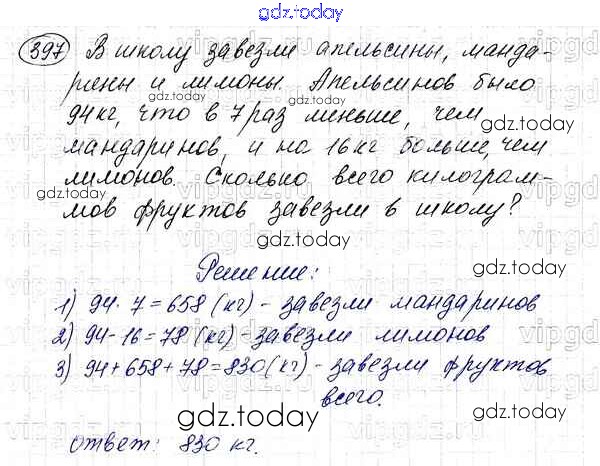 gdz.today
397 В школу завезли апельсины, манда-
рины и лимоны. Апельсинов было
94 кг, что в 7 раз меньше, чем
мандаринов, и на 16 кг больше, чем
лимонов. Сколько всего килограм-
мов фруктов завезли в школу?
Решение:
1) 94 · 7 = 658 (кг) - завезли мандаринов
2) 94 - 16 = 78 (кг) - завезли лимонов
3) 94 + 658 + 78 = 830 (кг) - завезли фруктов
всего.
gdz.today
ответ: 830 кг.